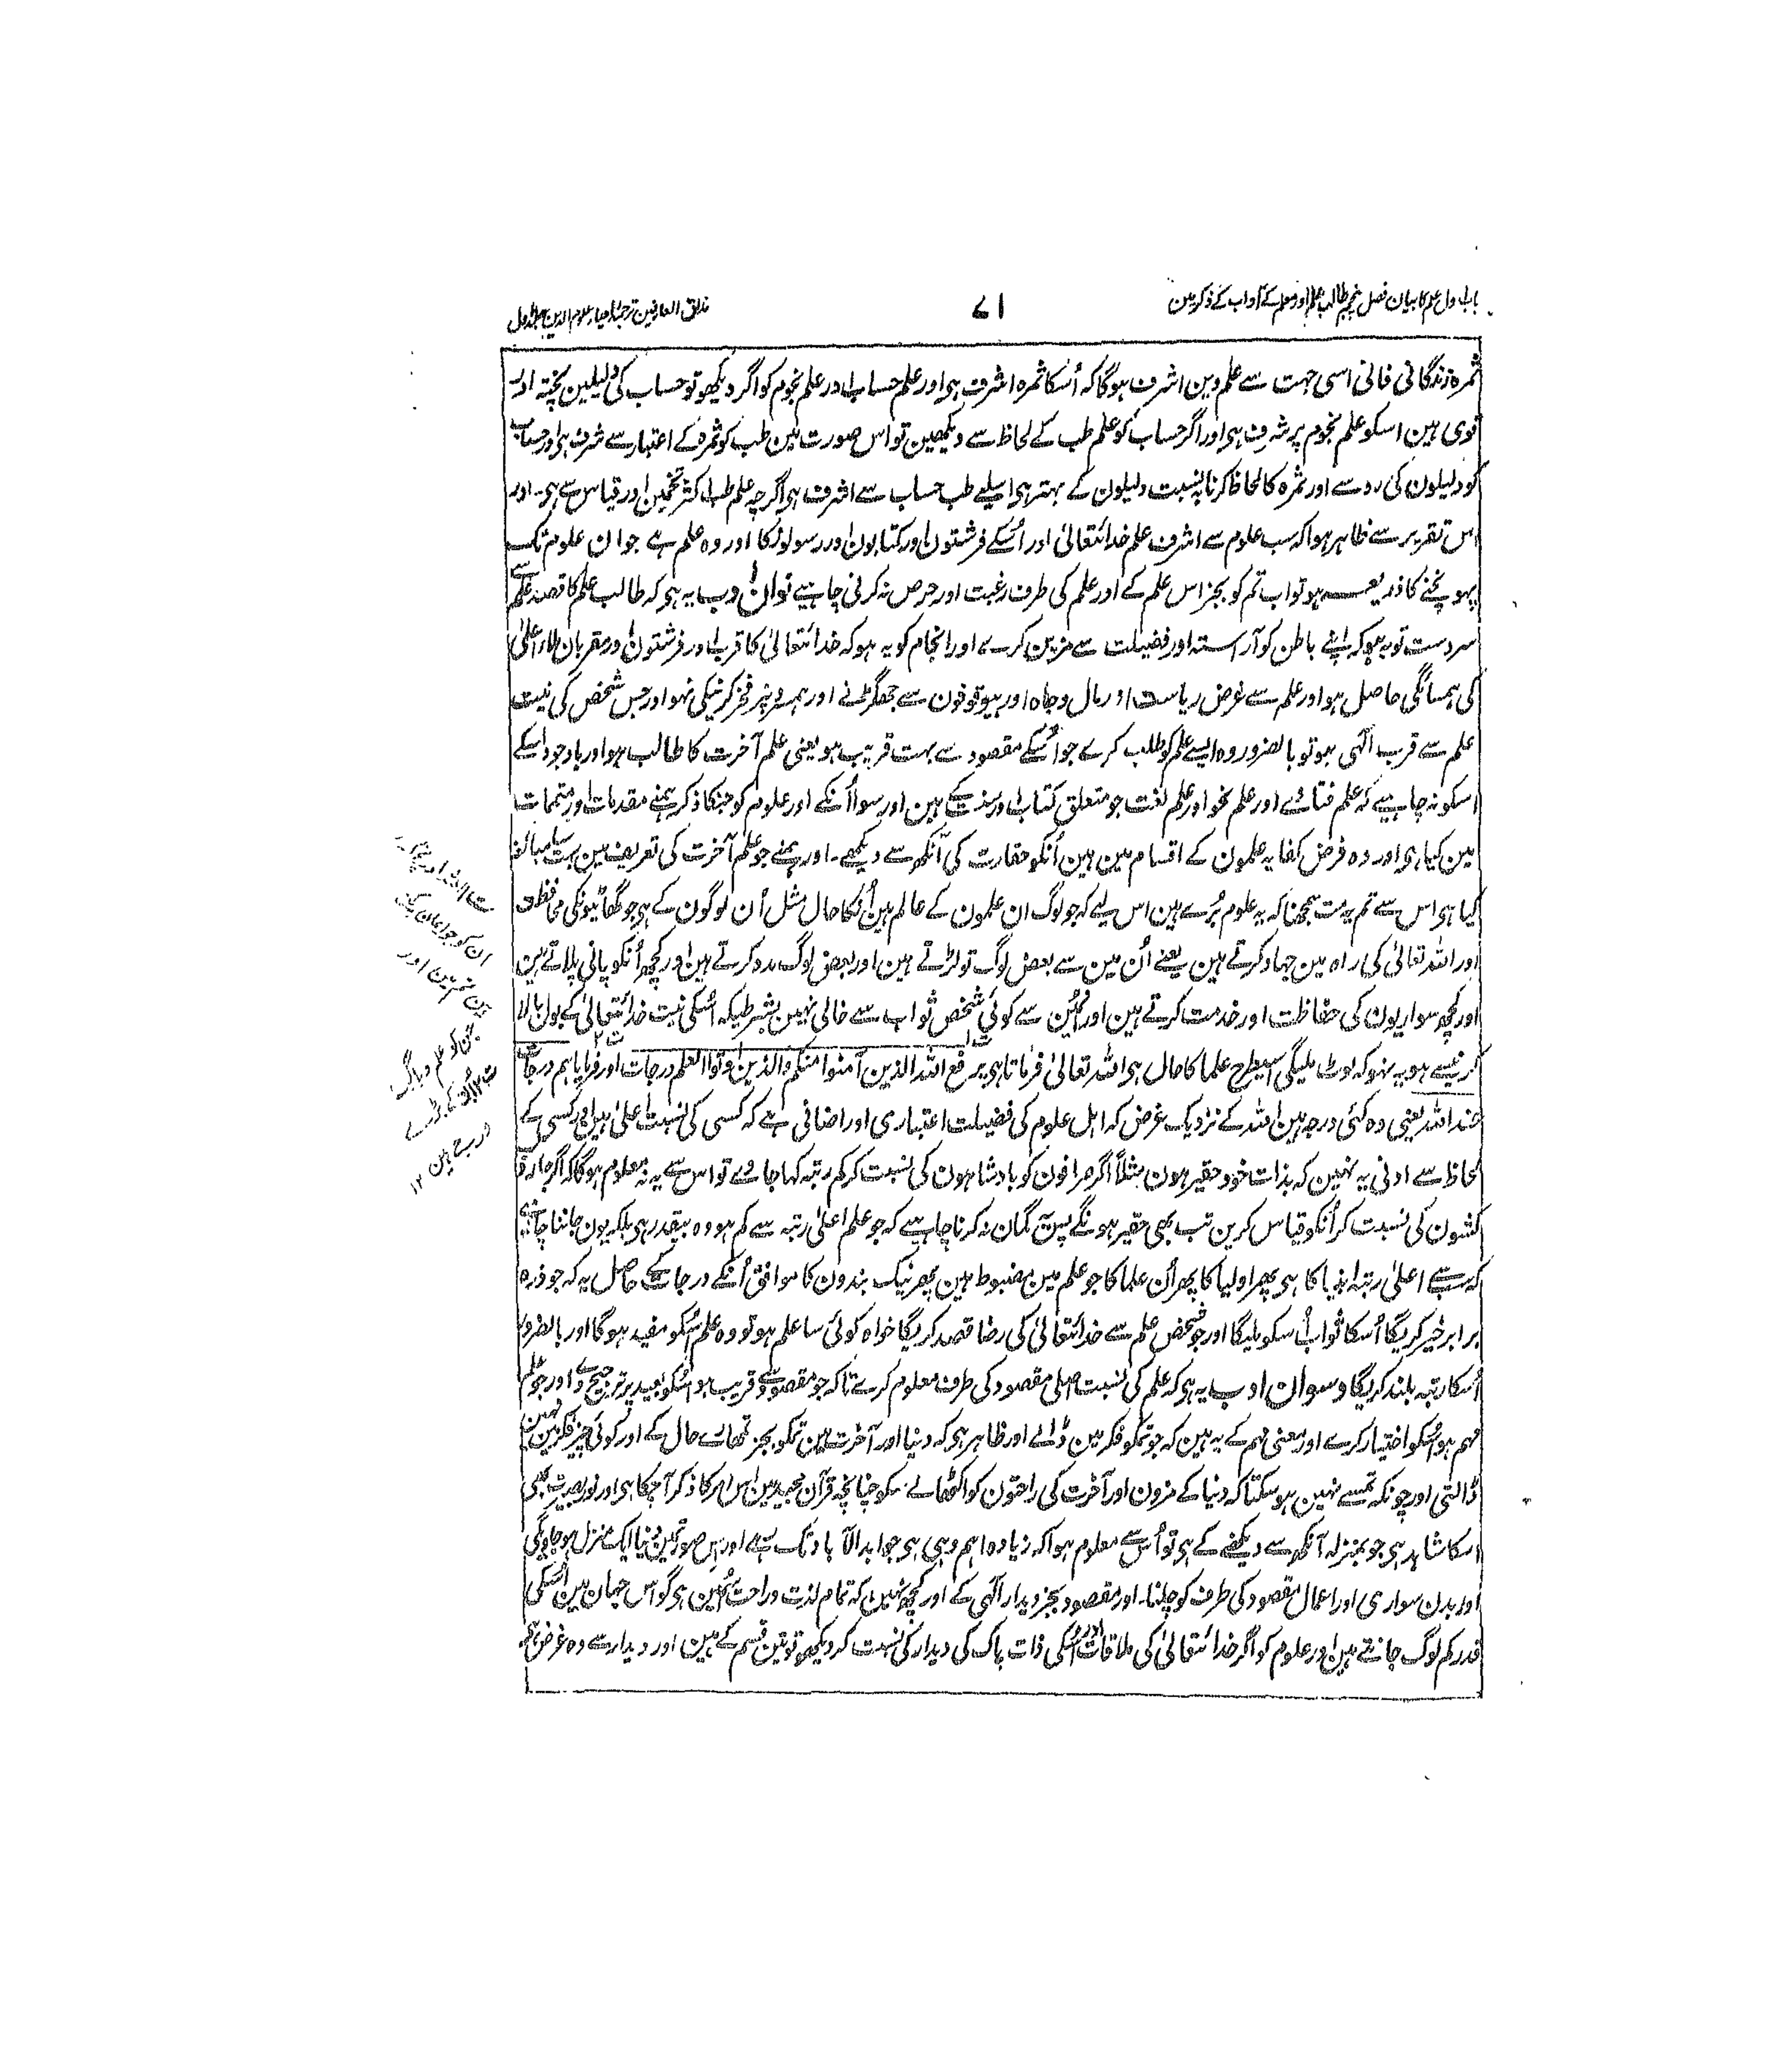 باب اول علم کا بیان فصل پنجم طالب علم اور معلم کے آداب کے ذکر مین
۷۱
مذاق العارفین ترجمہ احیاء علوم الدین جلد اول
ثمرہ زندگانی فانی اسی جہت سے علم دین اشرف ہوگا کہ اُسکا ثمرہ اشرف ہی اور علم حساب اور علم نجوم کو اگر دیکھو تو حساب کی دلیلین پختہ اور
قوی ہین اسکو علم نجوم پر شرف ہی اور اگر حساب کو علم طب کے لحاظ سے دیکھین تو اس صورت مین طب کو ثمرہ کے اعتبار سے شرف ہی اور حساب
کو دلیلون کی رو سے اور ثمرہ کا لحاظ کرنا بہ نسبت دلیلون کے بہتر ہی اسلیے طب حساب سے اشرف ہی اگرچہ علم طب اکثر تخمین اور قیاس سے ہی۔ اور
اس تقریر سے ظاہر ہوا کہ سب علوم سے اشرف علم خدائتعالیٰ اور اُسکے فرشتون اور کتابون اور رسولونکا اور وہ علم ہے جو ان علوم تک
پہونچنے کا ذریعہ ہو تو اب تم کو بجز اس علم کے اور علم کی طرف رغبت اور حرص نہ کرنی چاہیے نوان ادب یہ ہی کہ طالب علم کا قصد علم سے
سردست تو یہ ہو کہ اپنے باطن کو آراستہ اور فضیلت سے مزین کرے اور انجام کو یہ ہو کہ خدائتعالیٰ کا قرب اور فرشتون اور مقربان ملاء اعلیٰ
کی ہمسائگی حاصل ہو اور علم سے غرض ریاست اور مال و جاہ اور بیوقوفون سے جھگڑنے اور ہمسرونپر فخر کرنیکی نہو اور جس شخص کی نیت
علم سے قرب الٰہی ہو تو بالضرور وہ ایسے علم کو طلب کرے جو اُسکے مقصود سے بہت قریب ہو یعنی علم آخرت کا طالب ہو اور باوجود اسکے
اسکو نہ چاہیے کہ علم فتاوے اور علم نحو اور علم لغت جو متعلق کتاب اور سنت کے ہین اور سوا اُنکے اور علوم کو جنکا ذکر ہمنے مقدمات اور متممات
مین کیا ہی اور وہ فرض کفایہ علمون کے اقسام مین ہین اُنکو حقارت کی آنکھ سے دیکھے۔ اور ہمنے جو علم آخرت کی تعریف مین بہت سا مبالغہ
کیا ہی اس سے تم یہ مت سمجھنا کہ یہ علوم بُرے ہین اس لیے کہ جو لوگ ان علمون کے عالم ہین اُنکا حال مثل اُن لوگون کے ہی جو گھاٹیونکی محافظت
اور اللہ تعالیٰ کی راہ مین جہاد کرتے ہین یعنے اُن مین سے بعض لوگ تو لڑتے ہین اور بعض لوگ مدد کرتے ہین اور کچھ اُنکو پانی پلاتے ہین
اور کچھ سواریون کی حفاظت اور خدمت کرتے ہین اور اُنمین سے کوئی شخص ثواب سے خالی نہین بشرطیکہ اُسکی نیت خدائتعالیٰ کے بول بالا
کرنیسے ہو یہ نہو کہ لوٹ ملیگی اسیطرح علما کا حال ہی اللہ تعالیٰ فرماتا ہی یرفع اللہ الذین آمنوا منکم والذین اوتوا العلم درجات اور فرمایا ہم درجات
عند اللہ یعنی وہ کئی درجہ ہین اللہ کے نزدیک غرض کہ اہل علوم کی فضیلت اعتباری اور اضافی ہے کہ کسی کی نسبت اعلیٰ ہین اور کسی کے
لحاظ سے ادنی یہ نہین کہ بذات خود حقیر ہون مثلاً اگر صرافون کو بادشاہون کی نسبت کر کم رتبہ کہا جاوے تو اس سے یہ نہ معلوم ہوگا کہ اگر جاروب
کشون کی نسبت کر اُنکو قیاس کرین تب بھی حقیر ہونگے پس یہ گمان نہ کرنا چاہیے کہ جو علم اعلیٰ رتبہ سے کم ہو وہ بیقدر ہی بلکہ یون جاننا چاہیے
کہ سب سے اعلیٰ رتبہ انبیا کا ہی پھر اولیا کا پھر اُن علما کا جو علم مین مضبوط ہین پھر نیک بندون کا موافق اُنکے درجات کے حاصل یہ کہ جو ذرہ
برابر خیر کریگا اُسکا ثواب اُسکو ملیگا اور جو شخص علم سے خدائتعالیٰ کی رضا قصد کریگا خواہ کوئی سا علم ہو تو وہ علم اُسکو مفید ہوگا اور بالضرور
اُسکا رتبہ بلند کریگا دسوان ادب یہ ہی کہ علم کی نسبت اصلی مقصود کی طرف معلوم کرے تاکہ جو مقصود سے قریب ہو اُسکو بعید پر ترجیح دے اور جو علم
مہم ہو اُسکو اختیار کرے اور معنی مہم کے یہ ہین کہ جو تمکو فکر مین ڈالے اور ظاہر ہی کہ دنیا اور آخرت مین تمکو بجز تمھارے حال کے اور کوئی چیز فکر مین نہین
ڈالتی اور چونکہ تمسے نہین ہو سکتا کہ دنیا کے مزون اور آخرت کی راحتون کو اکٹھا لے سکو چنانچہ قرآن مجید مین اس امر کا ذکر آ چکا ہی اور نور بصیرت بھی
اسکا شاہد ہی جو بمنزلہ آنکھ سے دیکھنے کے ہی تو اُس سے معلوم ہوا کہ زیادہ اہم وہی ہی جو ابدالآباد تک رہے اور اس صورتمین دنیا ایک منزل ہو جاویگی
اور بدن سواری اور اعمال مقصود کی طرف کو چلنا۔ اور مقصود بجز دیدار الٰہی کے اور کچھ نہین کہ تمام لذت و راحت اُسیمین ہی گو اس جہان مین اُسکی
قدر کم لوگ جانتے ہین اور علوم کو اگر خدائتعالیٰ کی ملاقات اور اُسکی ذات پاک کی دیدار کی نسبت کر دیکھو تو تین قسم کے ہین اور دیدار سے وہ غرض
ان کو جو ایمان
ہین تم مین اور
جن کو علم دیا گیا
درجے ہین ۱۲